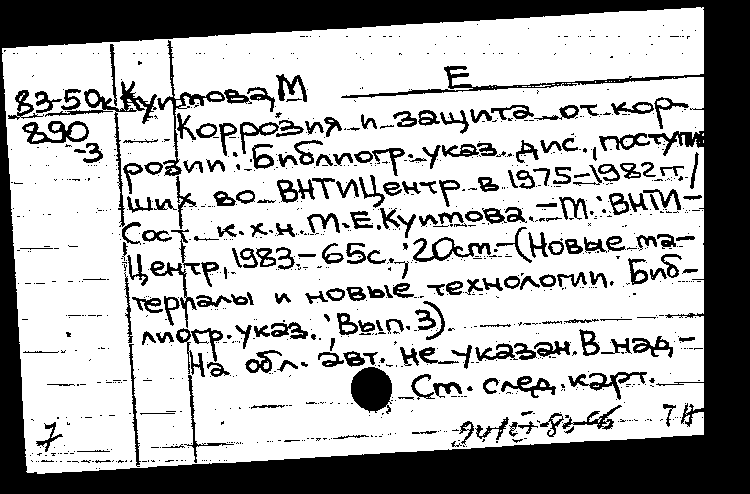 83-50к Куитова, М Е
890 Коррозия и защита от кор-
-3 розии: Библиогр. указ. дис., поступив
ших во ВНТИЦентр в 1975-1982 гг./
Сост. к.х.н. М.Е.Куитова. - М.: ВНТИ-
Центр, 1983. - 65с.; 20см. - (Новые ма-
териалы и новые технологии. Биб-
лиогр. указ.; Вып. 3).
На обл. авт. не указан. В над-
См. след. карт.
7